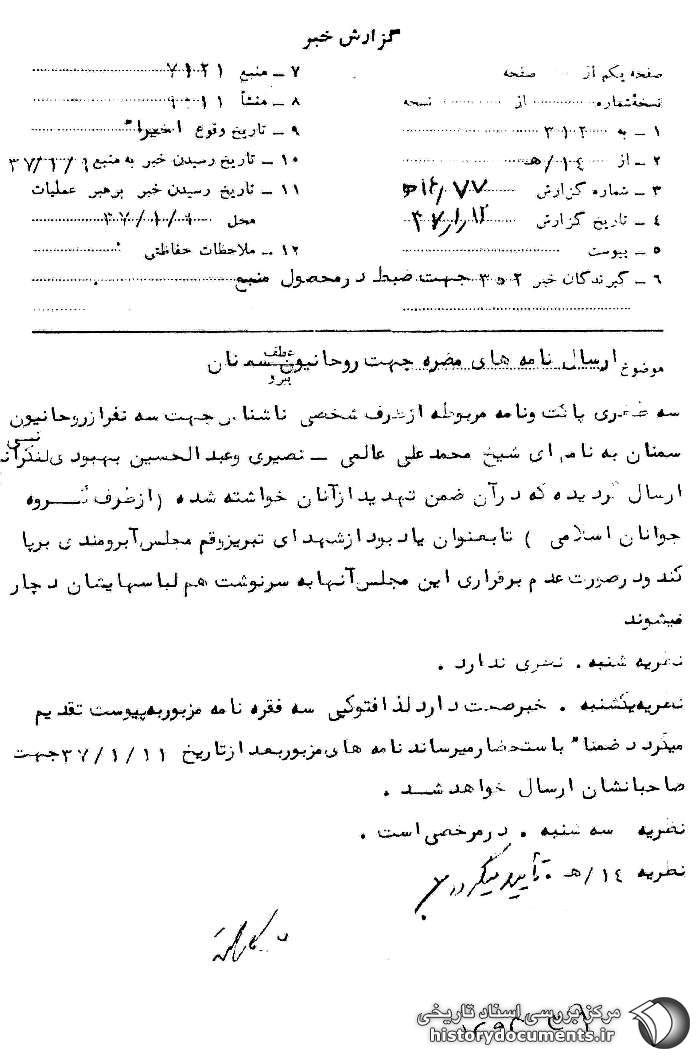 گزارش خبر
صفحه یکم از صفحه
نسخهٔ شماره از نسخه
۱ ـ به ۳۱۲
۲ ـ از ۱٤/هـ
۳ ـ شماره گزارش
۴ ـ تاریخ گزارش ۳۷/۱/۱۲
۵ ـ پیوست
۶ ـ گیرندگان خبر ۳۵۲ جهت ضبط در محصول منبع
۷ ـ منبع ۷۱۲۱
۸ ـ منشأ
۹ ـ تاریخ وقوع اخیراً
۱۰ ـ تاریخ رسیدن خبر به منبع ۳۷/۱/۹
۱۱ ـ تاریخ رسیدن خبر برهبر عملیات
محل ۳۷/۱/۹
۱۲ ـ ملاحظات حفاظتی
موضوع ارسال نامه های مضره جهت روحانیون سمنان
عطف
پیرو
سه طغری پاکت ونامه مربوطه ازطرف شخصی ناشناس جهت سه نفرازروحانیون
سمنان به نامهای شیخ محمدعلی عالمی ـ نصیری وعبدالحسین بهبودی
ارسال گردیده که درآن ضمن تهدیدازآنان خواشته شده (ازطرف گروه
جوانان اسلامی ) تابعنوان یادبودازشهدای تبریزوقم مجلس آبرومندی برپا
کنند ودرصورت عدم برقراری این مجلس آنهابه سرنوشت هم لباسهایشان دچار
میشوند
نظریه شنبه . نظری ندارد .
نظریه یکشنبه . خبرصحت دارد لذا فتوکپی سه فقره نامه مزبوربه پیوست تقدیم
میگردد ضمناً باستحضارمیرساند نامه های مزبوربعد ازتاریخ ۳۷/۱/۱۱ جهت
صاحبانشان ارسال خواهد شد .
نظریه سه شنبه . درمرخصی است .
نظریه ۱٤/هـ . تأیید میگردد
مرکز بررسی اسناد تاریخی
historydocuments.ir